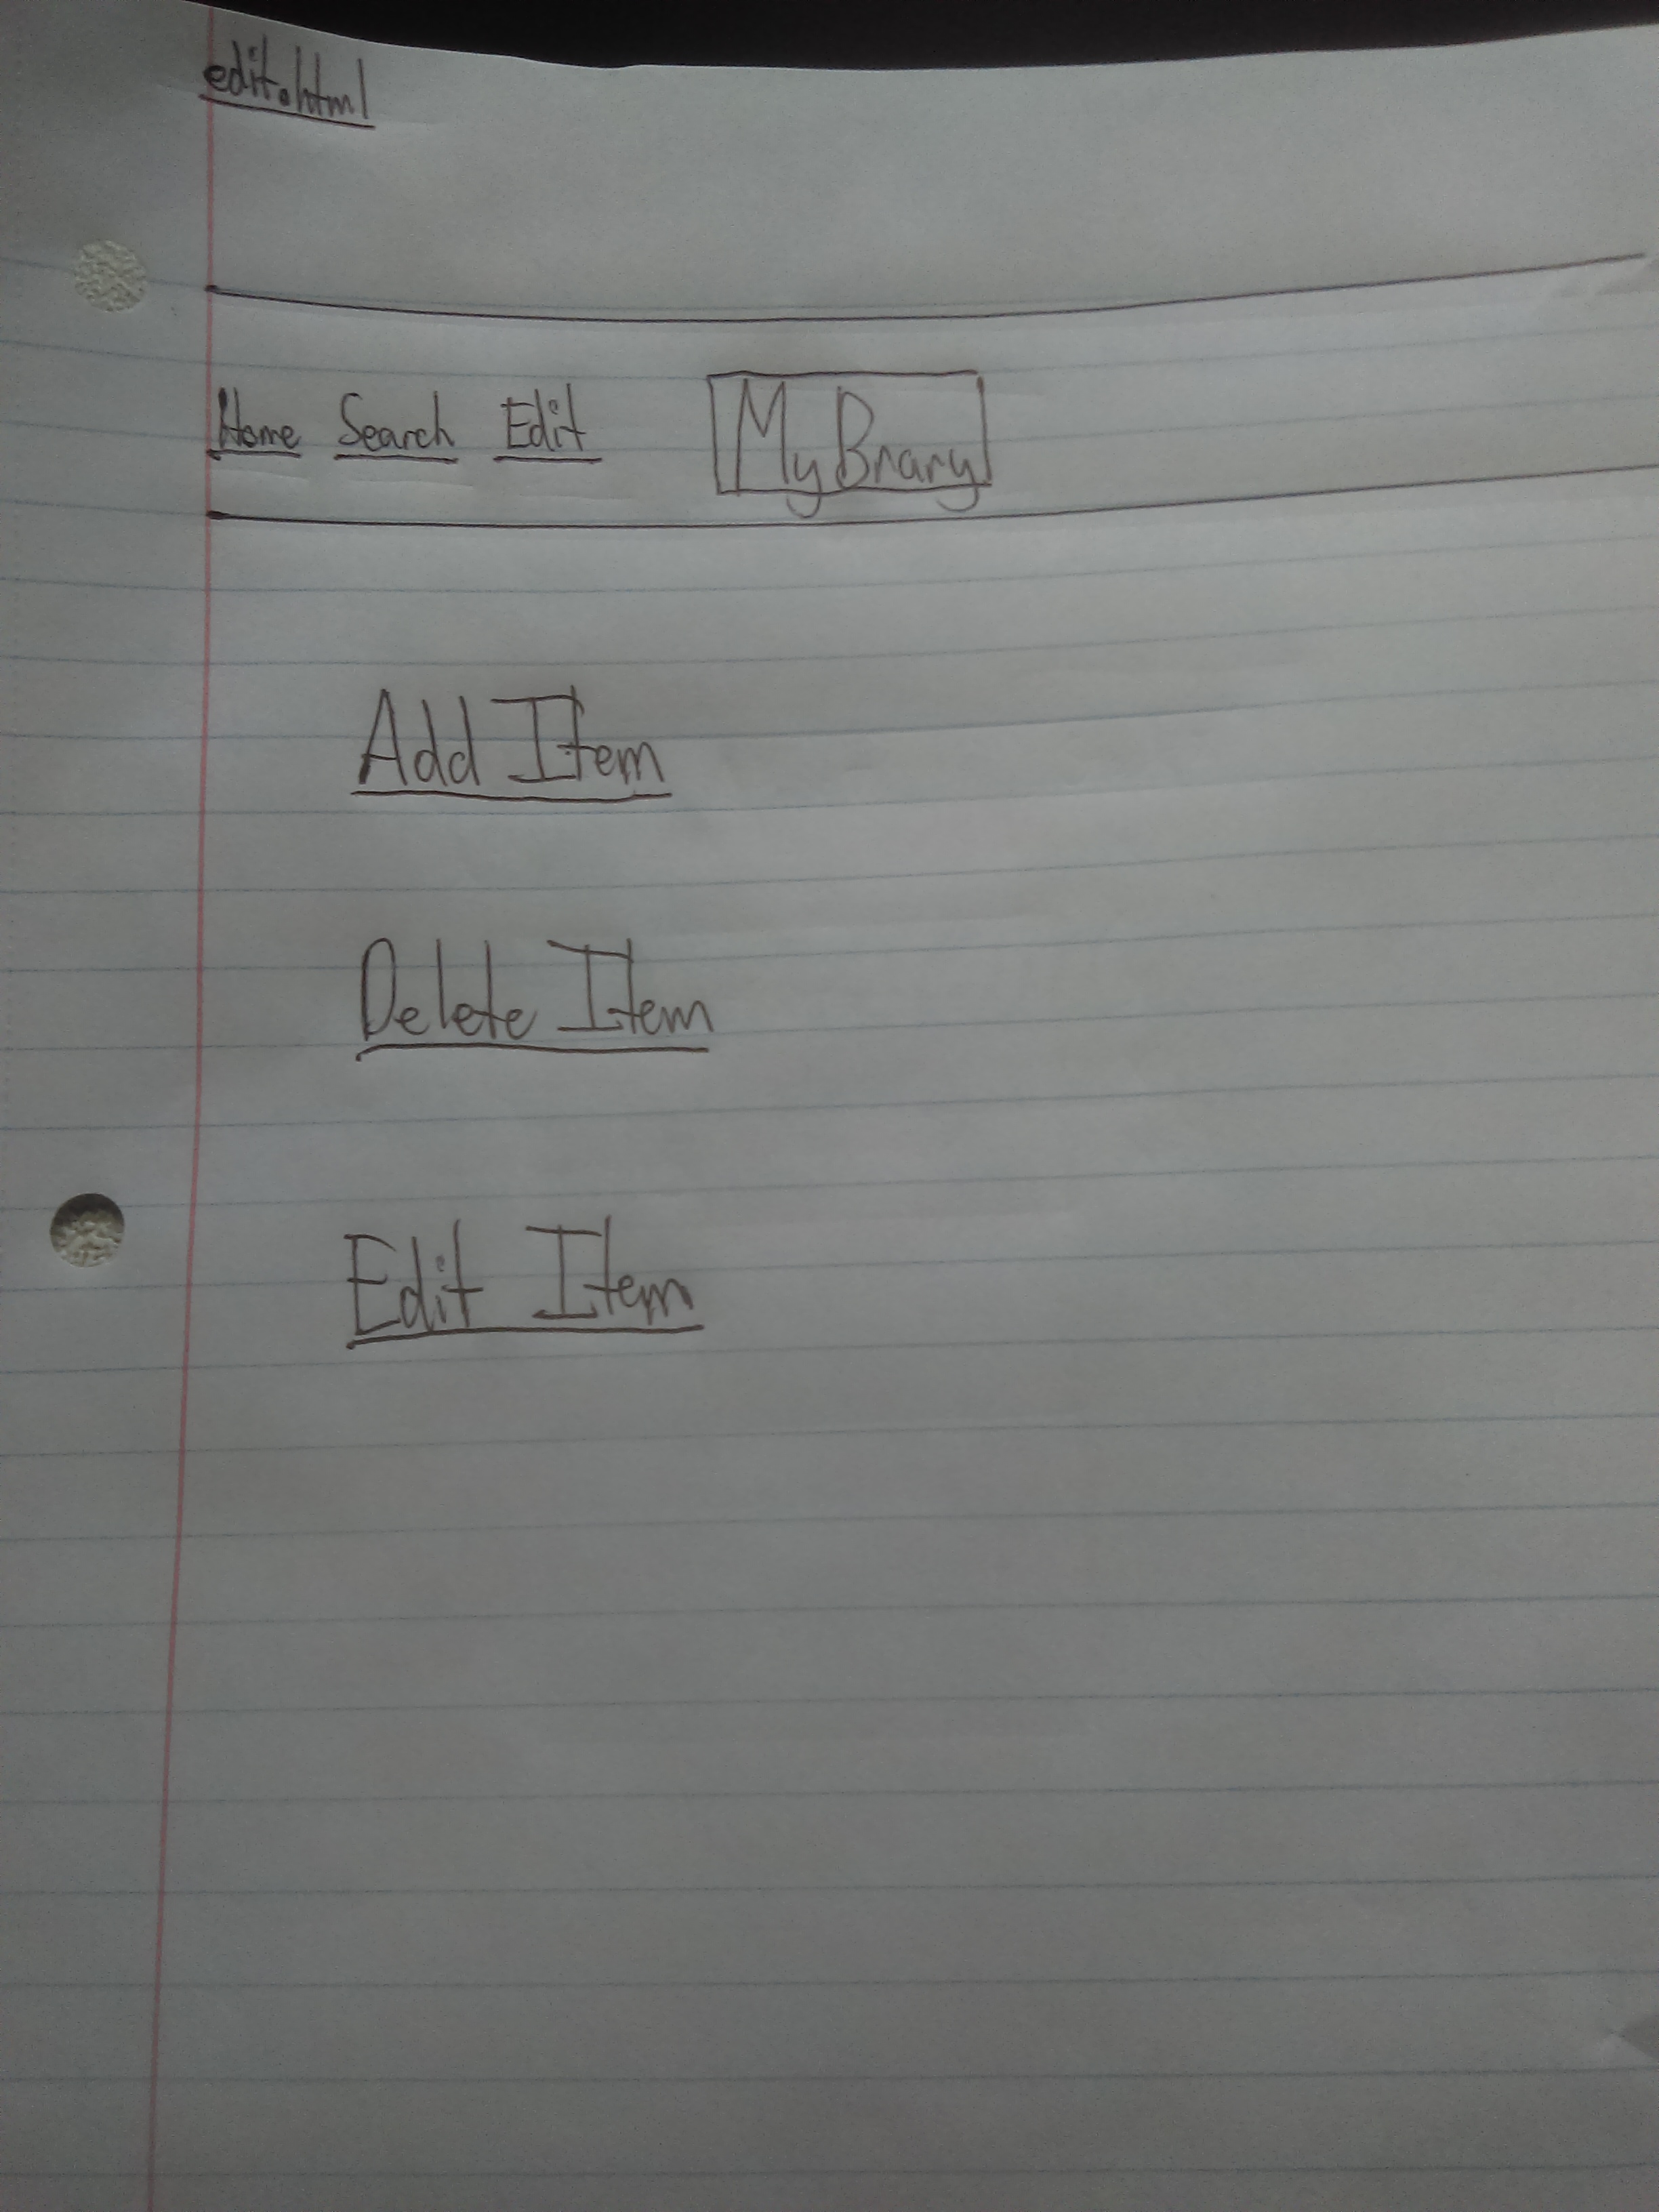 edit.html
Home Search Edit MyBrary
Add Item
Delete Item
Edit Item